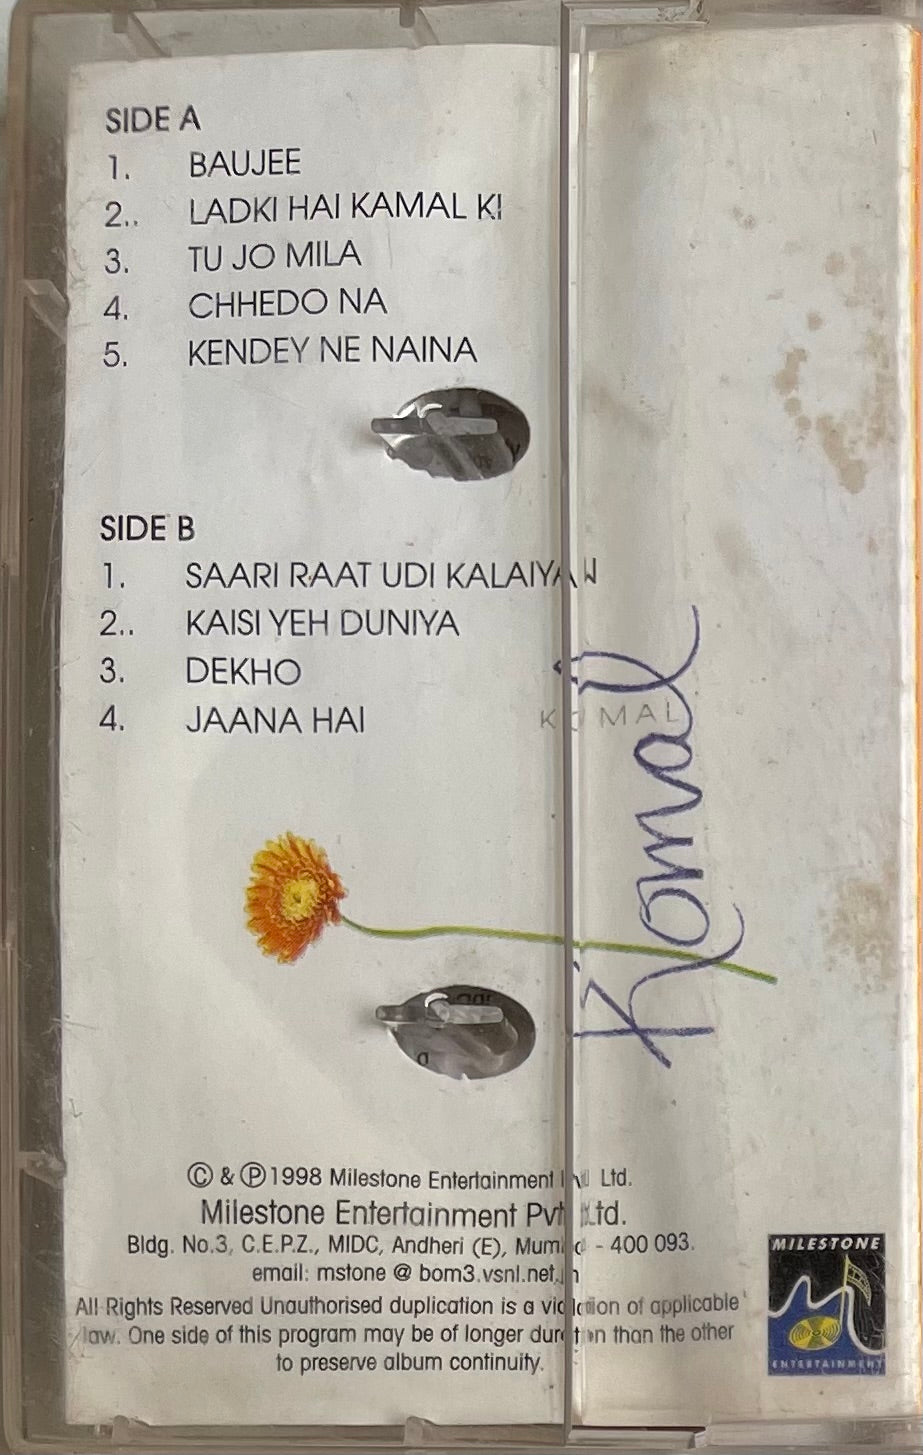 SIDE A
1. BAUJEE
2.. LADKI HAI KAMAL KI
3. TU JO MILA
4. CHHEDO NA
5. KENDEY NE NAINA
SIDE B
1. SAARI RAAT UDI KALAIYAN
2.. KAISI YEH DUNIYA
3. DEKHO
4. JAANA HAI
KOMAL
Komal
© & ℗ 1998 Milestone Entertainment Pvt. Ltd.
Milestone Entertainment Pvt. Ltd.
Bldg. No.3, C.E.P.Z., MIDC, Andheri (E), Mumbai - 400 093.
email: mstone @ bom3.vsnl.net.in
All Rights Reserved Unauthorised duplication is a violation of applicable
law. One side of this program may be of longer duration than the other
to preserve album continuity.
MILESTONE
ENTERTAINMENT